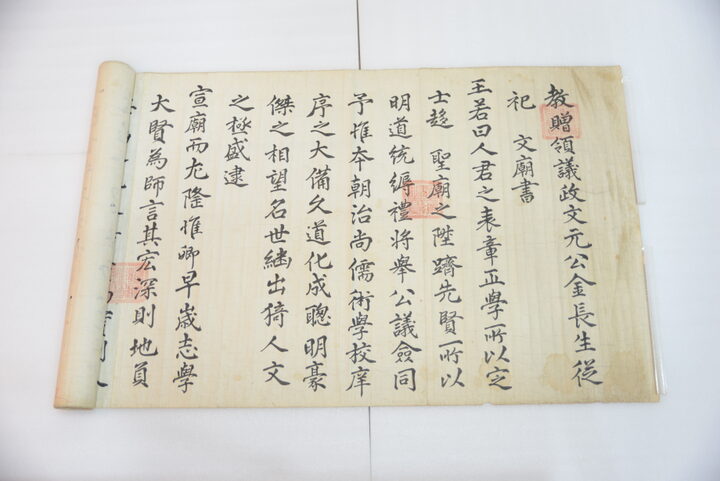 教贈領議政文元公金長生從
祀 文廟書
王若曰人君之表章正學所以定
士趍 聖廟之陞躋先賢所以
明道統縟禮將舉公議僉同
予惟本朝治尚儒術學校庠
序之大備久道化成聰明豪
傑之相望名世継出猗人文
之極盛逮
宣廟而尤隆惟卿早歲志學
大賢為師言其宏深則地負